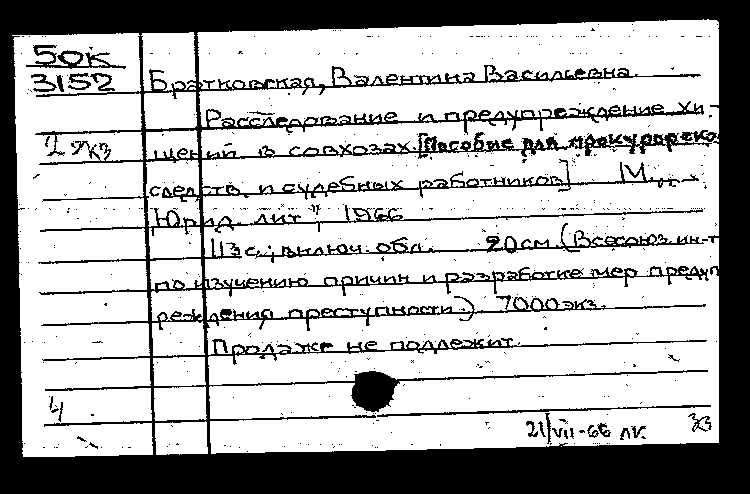 50К
3152
Братковская, Валентина Васильевна.
Расследование и предупреждение хи-
2 экз
щений в совхозах. [Пособие для прокурорско-
следств. и судебных работников] М.,
"Юрид. лит", 1966
113 с.; включ. обл. 20 см. (Всесоюз. ин-т
по изучению причин и разработке мер предуп
реждения преступности.) 7000 экз.
Продаже не подлежит.
4
21/VII-66 лк.